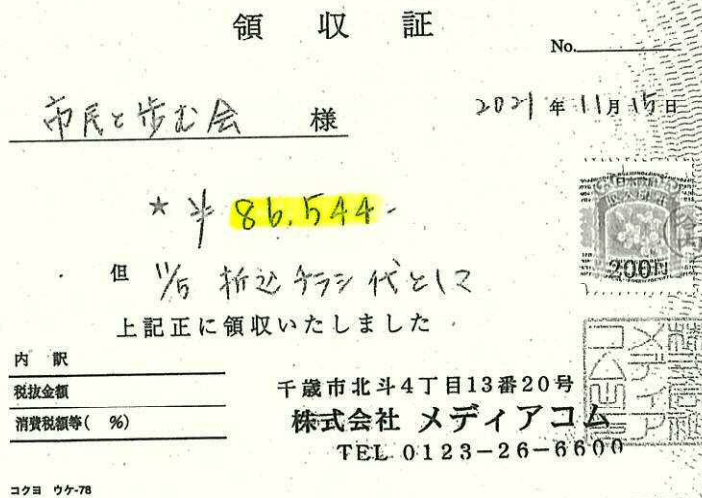 領収証
No.
市民と歩む会 様
2021年11月15日
★ ¥86,544-
但 11/5 折込チラシ代として
上記正に領収いたしました
内訳
税抜金額
消費税額等( %)
200円
千歳市北斗4丁目13番20号
株式会社 メディアコム
TEL 0123-26-6600
コクヨ ウケ-78